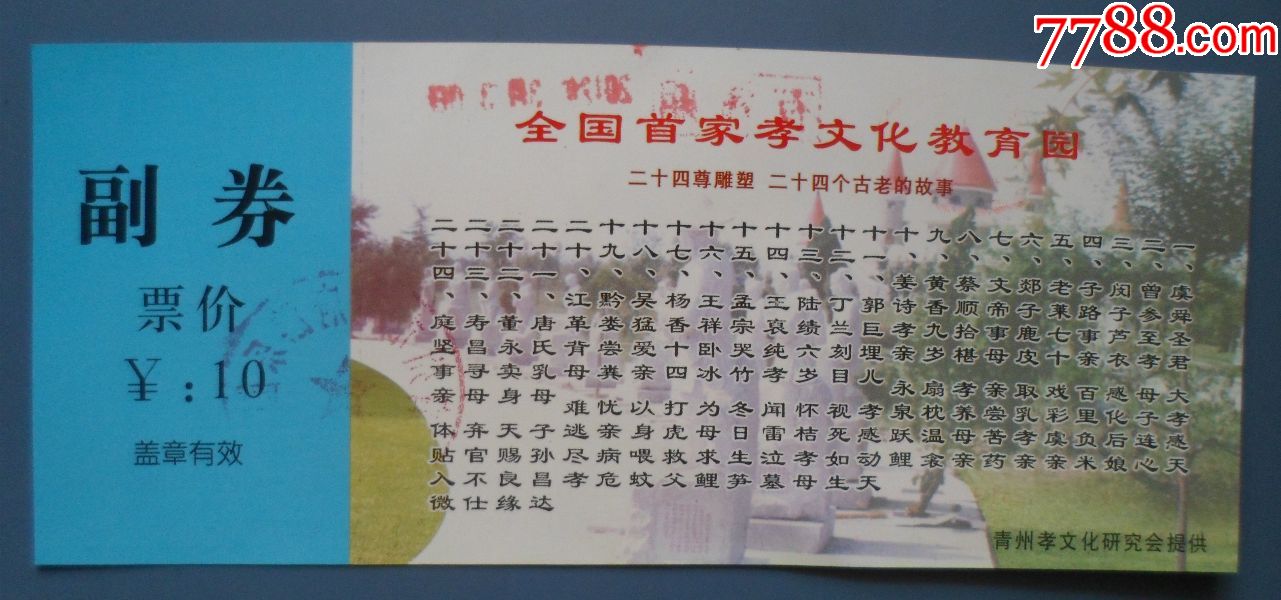 7788.com
副券
票价
￥:10
盖章有效
全国首家孝文化教育园
二十四尊雕塑 二十四个古老的故事
一、虞舜圣君 大孝感天
二、曾参至孝 母子连心
三、闵子芦衣 感化后娘
四、子路事亲 百里负米
五、老莱七十 戏彩虞亲
六、郯子鹿皮 取乳孝亲
七、文帝事母 亲尝苦药
八、蔡顺拾椹 孝养母亲
九、黄香九岁 扇枕温衾
十、姜诗孝亲 永泉跃鲤
十一、郭巨埋儿 孝感动天
十二、丁兰刻目 视死如生
十三、陆绩六岁 怀桔孝母
十四、王裒纯孝 闻雷泣墓
十五、孟宗哭竹 冬日生笋
十六、王祥卧冰 为母求鲤
十七、杨香十四 打虎救父
十八、吴猛爱亲 以身喂蚊
十九、黔娄尝粪 忧亲病危
二十、江革背母 难逃尽孝
二十一、唐氏乳母 子孙昌达
二十二、董永卖身 天赐良缘
二十三、寿昌寻母 弃官不仕
二十四、庭坚事亲 体贴入微
青州孝文化研究会提供